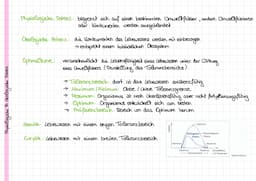 Physiologische Potenz: begrenzt sich auf einen bestimmten Umweltfaktor, andere Umweltfaktoren
oder Konkurrenten werden ausgeblendet
Ökologische Potenz: die Konkurrenten des Lebewesens werden mit einbezogen
→ entspricht einem tatsächlichen Ökosystem
Optimalkurve: veranschaulicht die Lebensfähigkeit eines Lebewesens unter der Wirkung
eines Umweltfaktors (Darstellung des Toleranzbereichs)
→ Toleranzbereich: dort ist das Lebewesen
→ Maximum / Minimum: obere / untere Toleranzgrenze
→ Pessimum: Organismus ist noch überlebensfähig aber nicht fortpflanzungsfähig
→ Optimum: Organismus entwickelt sich am besten
→ Präferenzbereich: Bereich um das Optimum herum
Stenök: Lebewesen mit einem engen Toleranzbereich
Euryök: Lebewesen mit einem weiten Toleranzbereich
Physiologische & ökologische Potenz